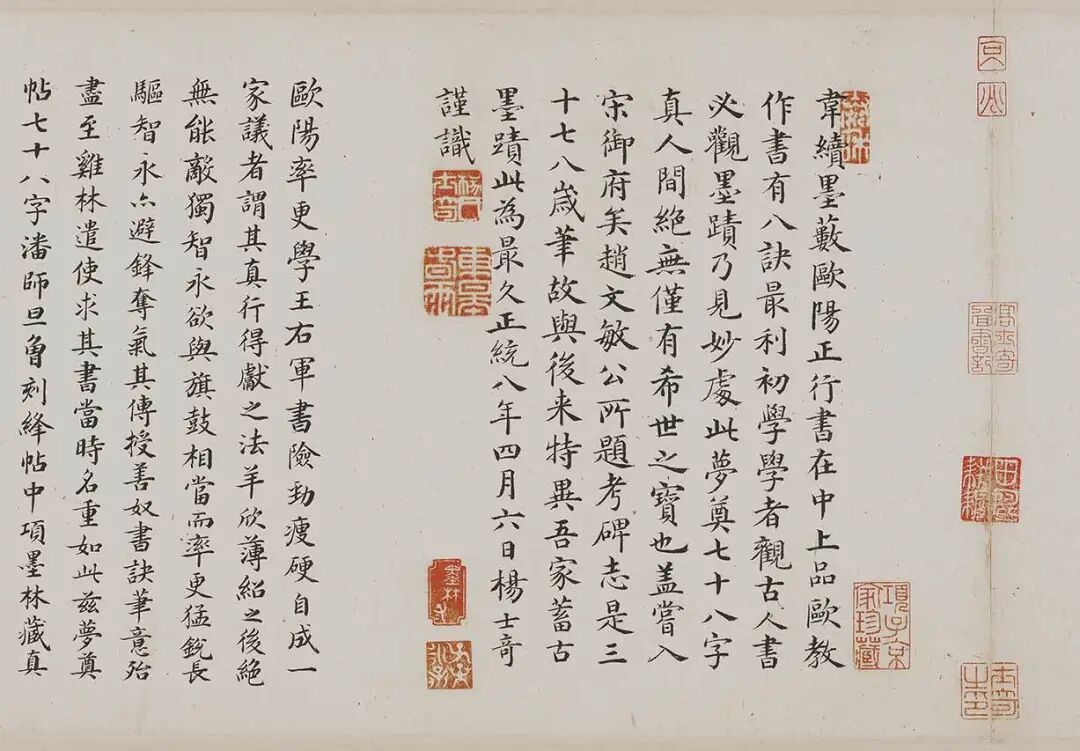 韋續墨藪歐陽正行書在中上品歐教
作書有八訣最利初學學者觀古人書
必觀墨蹟乃見妙處此夢奠七十八字
真人間絕無僅有希世之寶也盖嘗入
宋御府矣趙文敏公所題考碑志是三
十七八歲筆故與後来特異吾家蓄古
墨蹟此為最久正統八年四月六日楊士奇
謹識
歐陽率更學王右軍書險勁瘦硬自成一
家議者謂其真行得獻之法羊欣薄紹之後絕
無能敵獨智永欲與旗鼓相當而率更猛銳長
驅智永亦避鋒奪氣其傳授善奴書訣筆意殆
盡至雞林遣使求其書當時名重如此兹夢奠
帖七十八字潘師旦曾刻絳帖中項墨林藏真
項子京
家珍藏
墨林